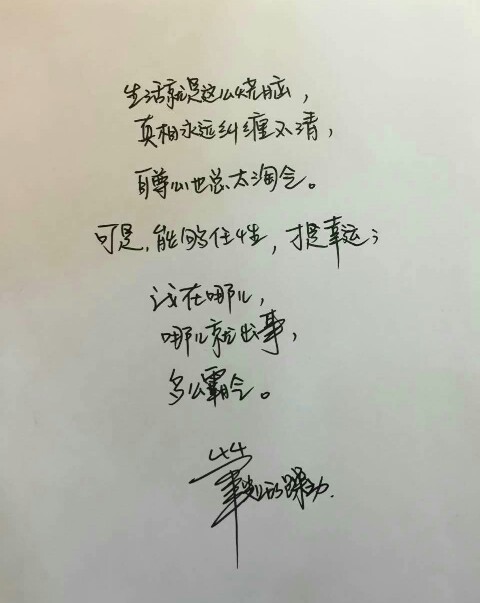 生活就是这么烧脑，
真相永远纠缠不清，
自尊心也总太淘气。
可是，能够任性，才是幸运；
我在哪儿，
哪儿就出事，
多么霸气。
的躁动.